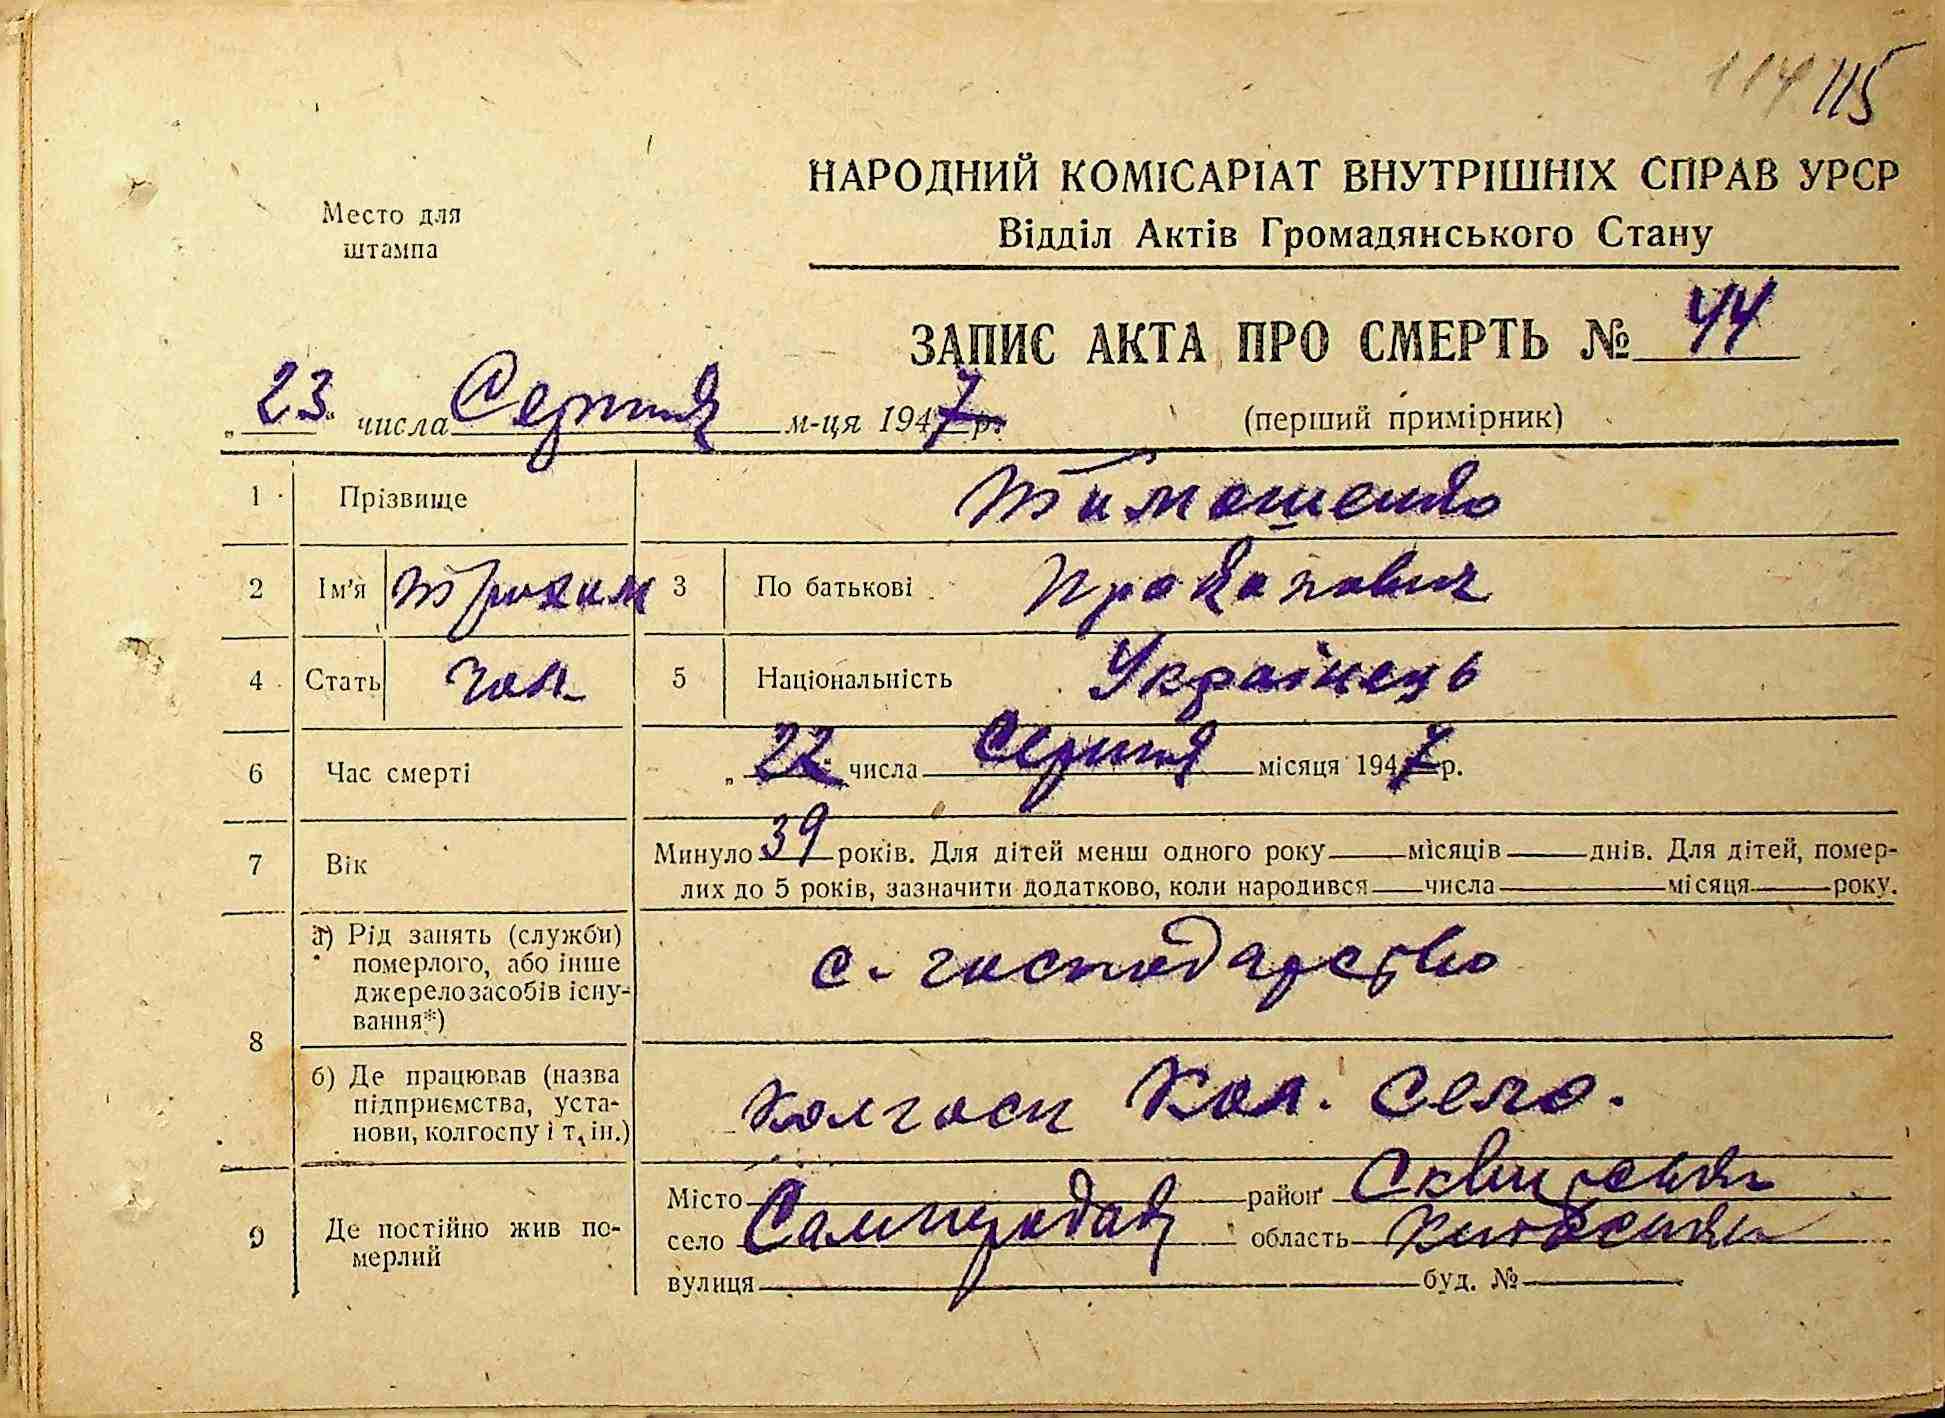 114 115
НАРОДНИЙ КОМІСАРІАТ ВНУТРІШНІХ СПРАВ УРСР
Место для
штампа
Відділ Актів Громадянського Стану
ЗАПИС АКТА ПРО СМЕРТЬ № 44
„23" числа Серпня м-ця 1947 р.
(перший примірник)
1 Прізвище Тимошенко
2 Ім'я Трохим 3 По батькові Прокопович
4 Стать чол. 5 Національність Українець
6 Час смерті „22" числа Серпня місяця 1947 р.
7 Вік Минуло 39 років. Для дітей менш одного року місяців днів. Для дітей, помер-
лих до 5 років, зазначити додатково, коли народився числа місяця року.
8 а) Рід занять (служби)
померлого, або інше
джерело засобів існу-
вання*)
с-господарство
б) Де працював (назва
підприємства, уста-
нови, колгоспу і т. ін.)
колгосп Кол. село.
9 Де постійно жив по-
мерлий
Місто район Сквирський
село Самгородок область Київський
вулиця буд. №